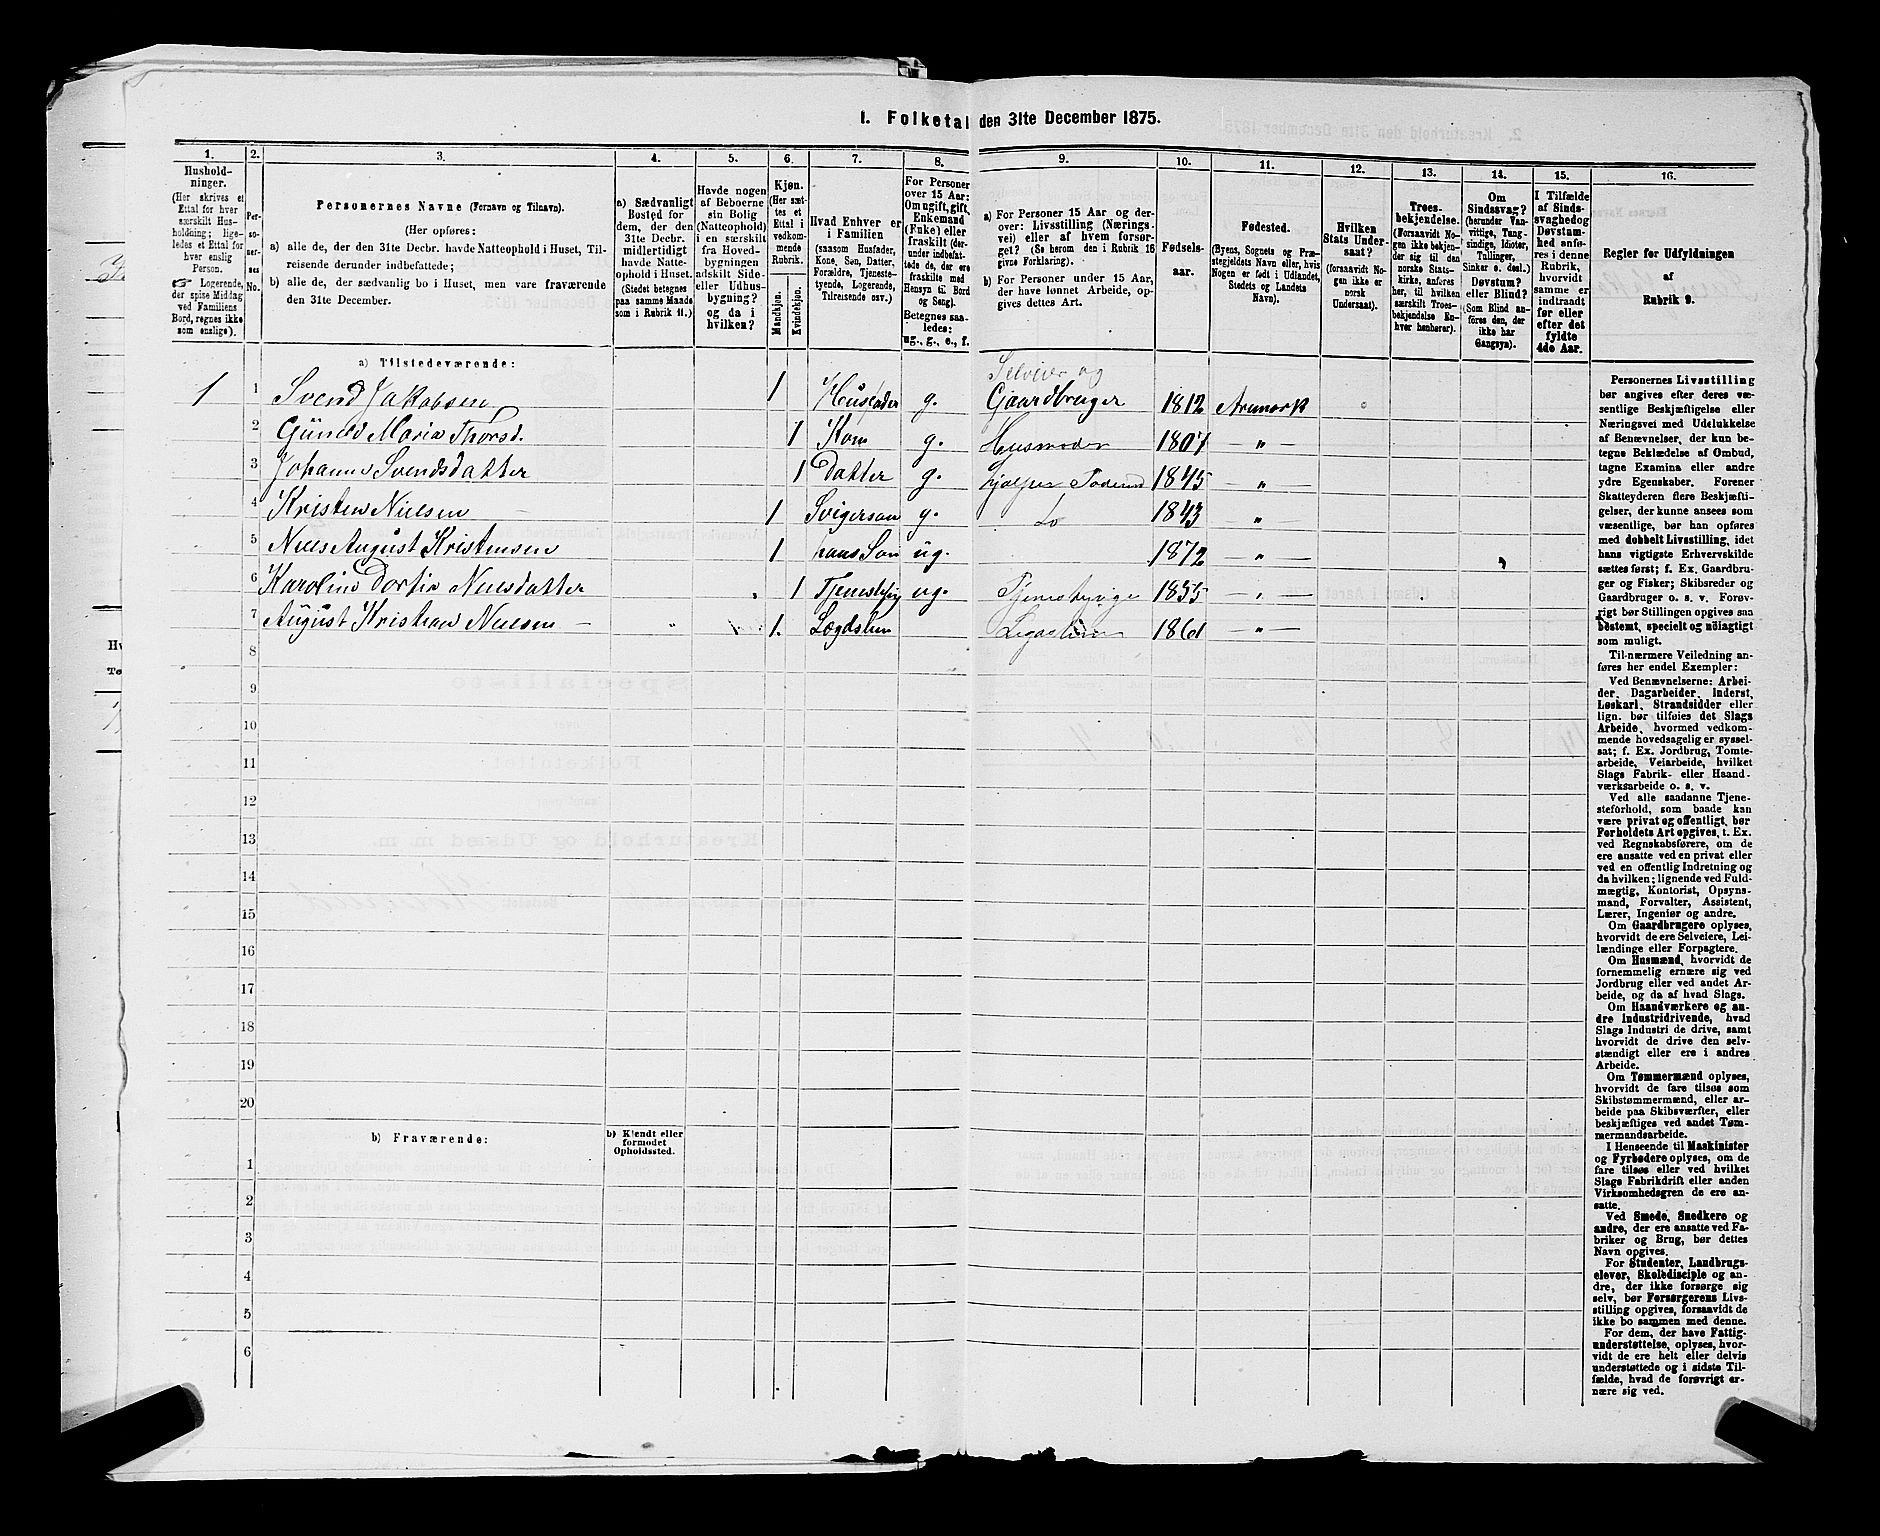 1. Folketal den 31te December 1875.
1.
Hushold-
ninger.
(Her skrives et
Ettal for hver
særskilt Hus-
holdning; lige-
ledes et Ettal for
hver enslig
Person.
☞ Logerende,
der spise Middag
ved Familiens
Bord, regnes ikke
som enslige).
2.
Per-
so-
ner-
nes
No.
3.
Personernes Navne (Fornavn og Tilnavn).
(Her opføres:
a) alle de, der den 31te Decbr. havde Natteophold i Huset, Til-
reisende derunder indbefattede;
b) alle de, der sædvanlig bo i Huset, men vare fraværende
den 31te December.
4.
a) Sædvanligt
Bosted for
dem, der den
31te Decbr.
midlertidigt
havde Natte-
ophold i Huset.
(Stedet betegnes
paa samme Maade
som i Rubrik 11.)
5.
Havde nogen
af Beboerne
sin Bolig
(Natteophold)
i en særskilt
fra Hoved-
bygningen
adskilt Side-
eller Udhus-
bygning?
og da i
hvilken?
6.
Kjøn.
(Her sæt-
tes et
Ettal i
vedkom-
mende
Rubrik.
Mandkjøn.
Kvindekjøn.
7.
Hvad Enhver er
i Familien
(saasom Husfader,
Kone, Søn, Datter,
Forældre, Tjeneste-
tyende, Logerende,
Tilreisende osv.)
8.
For Personer
over 15 Aar:
Om ugift, gift,
Enkemand
(Enke) eller
fraskilt (der-
under indbefat-
tede de, der ere
fraskilte med
Hensyn til Bord
og Seng).
Betegnes saa-
ledes:
ug., g., e., f.
9.
a) For Personer 15 Aar og der-
over: Livsstilling (Nærings-
vei) eller af hvem forsør-
get? (Se herom den i Rubrik 16
givne Forklaring).
b) For Personer under 15 Aar,
der have lønnet Arbeide, op-
gives dettes Art.
10.
Fødsels-
aar.
11.
Fødested.
(Byens, Sognets og Præ-
stegjeldets Navn eller, hvis
Nogen er født i Udlandet,
Stedets og Landets
Navn).
12.
Hvilken
Stats Under-
saat?
(forsaavidt No-
gen ikke er
norsk
Undersaat).
13.
Troes-
bekjendelse.
(Forsaavidt No-
gen ikke bekjen-
der sig til den
norske Stats-
kirke, anføres
her, til hvilken
særskilt Troes-
bekjendelse En-
hver henhører).
14.
Om
Sindssvag?
(herunder Van-
vittige, Tung-
sindige, Idioter,
Tullinger,
Sinker o. desl.)
Døvstum?
eller Blind?
(Som Blind an-
føres den, der
ikke har
Gangsyn).
15.
I Tilfælde
af Sinds-
svaghed og
Døvstum-
hed anfø-
res i denne
Rubrik,
hvorvidt
samme er
indtraadt
før eller
efter det
fyldte
4de Aar.
16.
Regler for Udfyldningen
af
Rubrik 9.
a) Tilstedeværende:
Selveier og
1 1 Svend Jakobsen 1 Husfader g. Gaardbruger 1812 Aremark
2 Maria Thorsd. 1 Kone g. Husmoder 1807 — " —
3 Johanne Svendsdatter 1 Datter g. 1845 — " —
4 Kristen Nielsen 1 Svigersøn g. Do 1843 — " —
5 Niels August Kristensen 1 hans Søn ug. 1872 — " —
6 Karoline Dortia Nielsdatter 1 ug. 1855 — " —
7 August Kristian Nielsen — 1. Lægdslem 1861 — " —
8
9
10
11
12
13
14
15
16
17
18
19
20
b) Fraværende:
b) Kjendt eller
formodet
Opholdssted.
1
2
3
4
5
6
Personernes Livsstilling
bør angives efter deres væ-
sentlige Beskjæftigelse eller
Næringsvei med Udelukkelse
af Benævnelser, der kun be-
tegne Beklædelse af Ombud,
tagne Examina eller andre
ydre Egenskaber. Forener
Skatteyderen flere Beskjæfti-
gelser, der kunne ansees som
væsentlige, bør han opføres
med dobbelt Livsstilling, idet
hans vigtigste Erhvervskilde
sættes først; f. Ex. Gaardbru-
ger og Fisker; Skibsreder og
Gaardbruger o. s. v. Forøv-
rigt bør Stillingen opgives saa
bestemt, specielt og nöiagtigt
som muligt.
Til nærmere Veiledning an-
føres her endel Exempler:
Ved Benævnelserne: Arbei-
der, Dagarbeider, Inderst,
Løskarl, Strandsidder eller
lign. bør tilføies det Slags
Arbeide, hvormed vedkom-
mende hovedsagelig er syssel-
sat; f. Ex. Jordbrug, Tomte-
arbeide, Veiarbeide, hvilket
Slags Fabrik- eller Haand-
værksarbeide o. s. v.
Ved alle saadanne Tjene-
steforhold, som baade kan
være privat og offentligt, bør
Forholdets Art opgives, t. Ex.
ved Regnskabsførere, om de
ere ansatte ved en privat eller
ved en offentlig Indretning og
da hvilken; lignende ved Fuld-
mægtig, Kontorist, Opsyns-
mand, Forvalter, Assistent,
Lærer, Ingeniør og andre.
Om Gaardbrugere oplyses,
hvorvidt de ere Selveiere, Lei-
lændinge eller Forpagtere.
Om Husmænd, hvorvidt de
fornemmelig ernære sig ved
Jordbrug eller ved andet Ar-
beide, og da af hvad Slags.
Om Haandværkere og an-
dre Industridrivende, hvad
Slags Industri de drive, samt
hvorvidt de drive den selv-
stændigt eller ere i andres
Arbeide.
Om Tømmermænd oplyses,
hvorvidt de fare tilsøs som
Skibstømmermænd, eller ar-
beide paa Skibsværfter, eller
beskjæftiges ved andet Tøm-
mermandsarbeide.
I Henseende til Maskinister
og Fyrbødere oplyses, om de
fare tilsøs eller ved hvilket
Slags Fabrikdrift eller anden
Virksomhedsgren de ere an-
satte.
Ved Smede, Snedkere og
andre, der ere ansatte ved Fa-
briker og Brug, bør dettes
Navn opgives.
For Studenter, Landbrugs-
elever, Skoledisciple og an-
dre, der ikke forsørge sig
selv, bør Forsørgerens Livs-
stilling opgives, forsaavidt de
ikke bo sammen med denne.
For dem, der have Fattig-
understøttelse, oplyses, hvor-
vidt de ere helt eller delvis
understøttede og i sidste Til-
fælde, hvad de forøvrigt er-
nære sig ved.